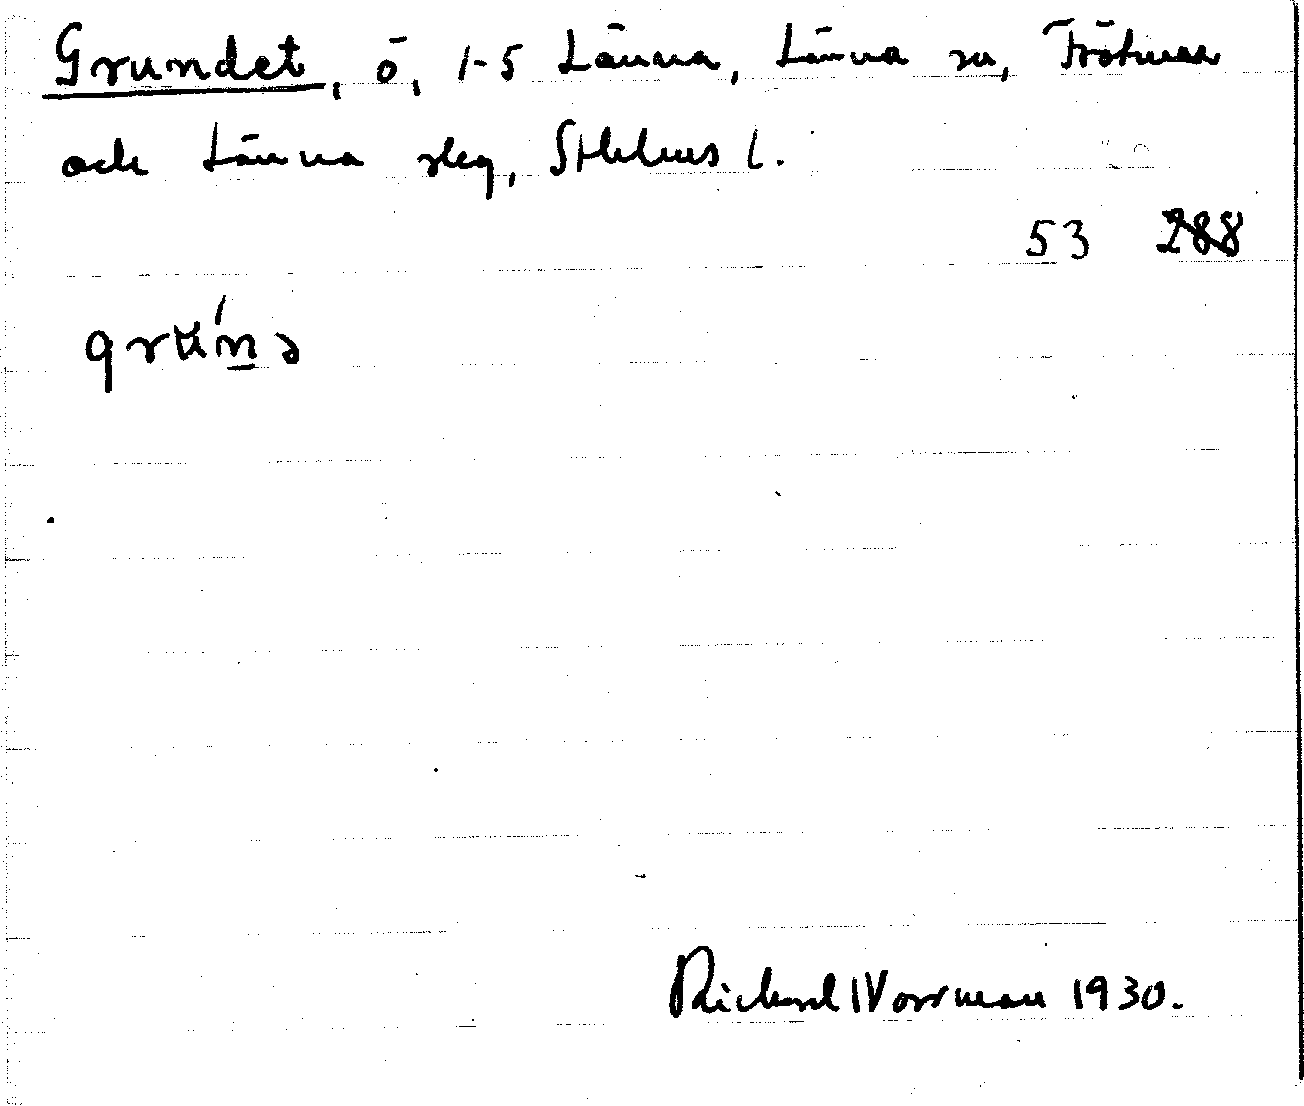 Grundet, ö, 1-5 Länna, Länna sn, Frötuna
och Länna slg, Sthlms l.
53 288
grún̲ə
Richard Norrman 1930.